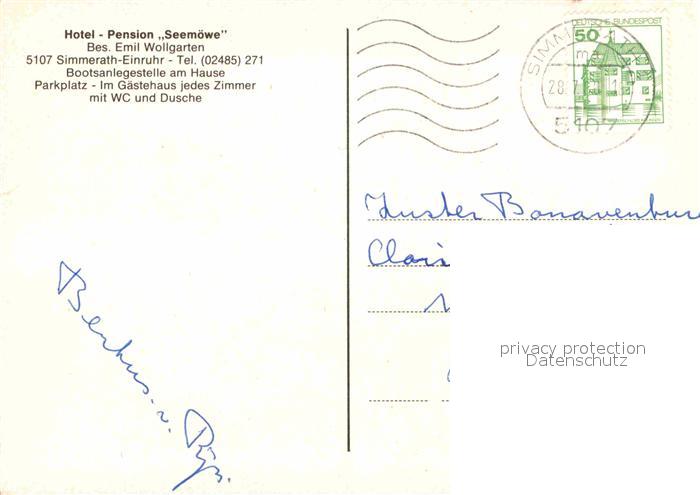 Hotel - Pension „Seemöwe"
Bes. Emil Wollgarten
5107 Simmerath-Einruhr - Tel. (02485) 271
Bootsanlegestelle am Hause
Parkplatz - Im Gästehaus jedes Zimmer
mit WC und Dusche
DEUTSCHE BUNDESPOST
50
5107
Bonaventur
privacy protection
Datenschutz